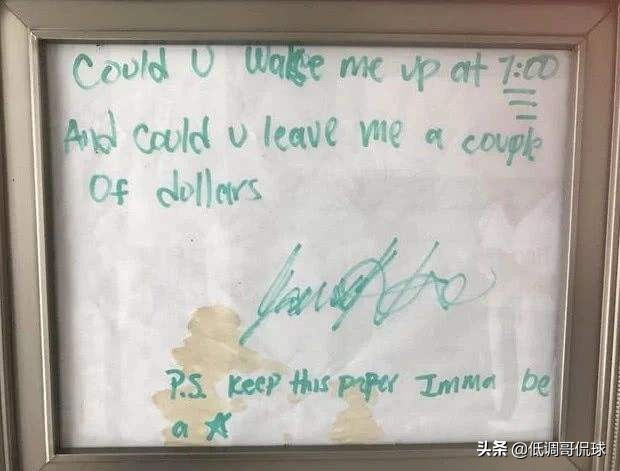 Could U Wake me up at 7:00
And could u leave me a couple
Of dollars
P.S. Keep this paper Imma be
a ☆
头条 @低调哥侃球